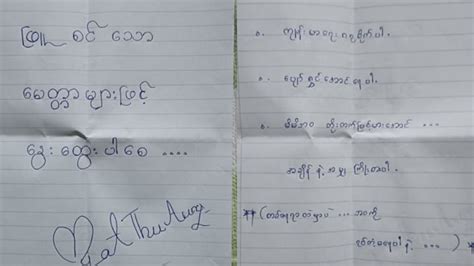 ဖြူ စင် သော
မေတ္တာ များဖြင့်
နွေး ထွေး ပါ စေ ....
Myat Thu Aung
၁. ကျန်းမာရေး ဂရုစိုက်ပါ.
၂. ပျော်ရွှင်အောင်နေပါ.
၃. မိမိဘဝ တိုးတက်မြင့်မားအောင် ...
အချိန် နဲ့ အမျှ ကြိုးစားပါ.